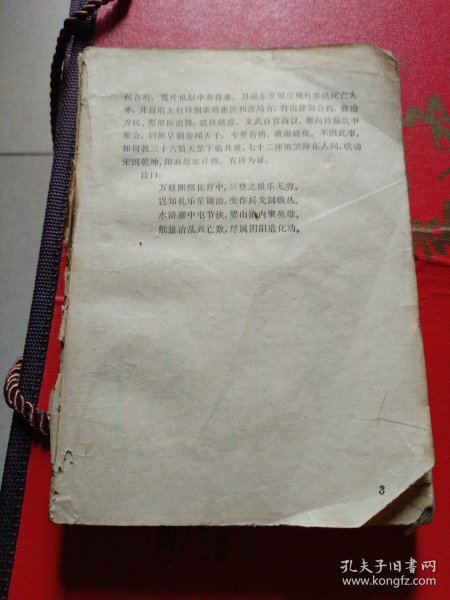 州各府，雪片也似申奏将来。且说东京城里城外军民死亡大
半，开封府主包待制亲将惠民和济局方，自出俸资合药，救治
万民。那里医治得，瘟疫越盛。文武百官商议，都向待漏院中
聚会，伺候早朝奏闻天子，专要祈祷，禳谢瘟疫。不因此事，
如何教三十六员天罡下临凡世，七十二座地煞降在人间，哄动
宋国乾坤，闹遍赵家社稷。有诗为证：
诗曰：
万姓熙熙化育中，三登之世乐无穷。
岂知礼乐笙镛治，变作兵戈剑戟丛。
水浒寨中屯节侠，梁山泊内聚英雄。
细推治乱兴亡数，尽属阴阳造化功。
3
孔夫子旧书网
www.kongfz.com